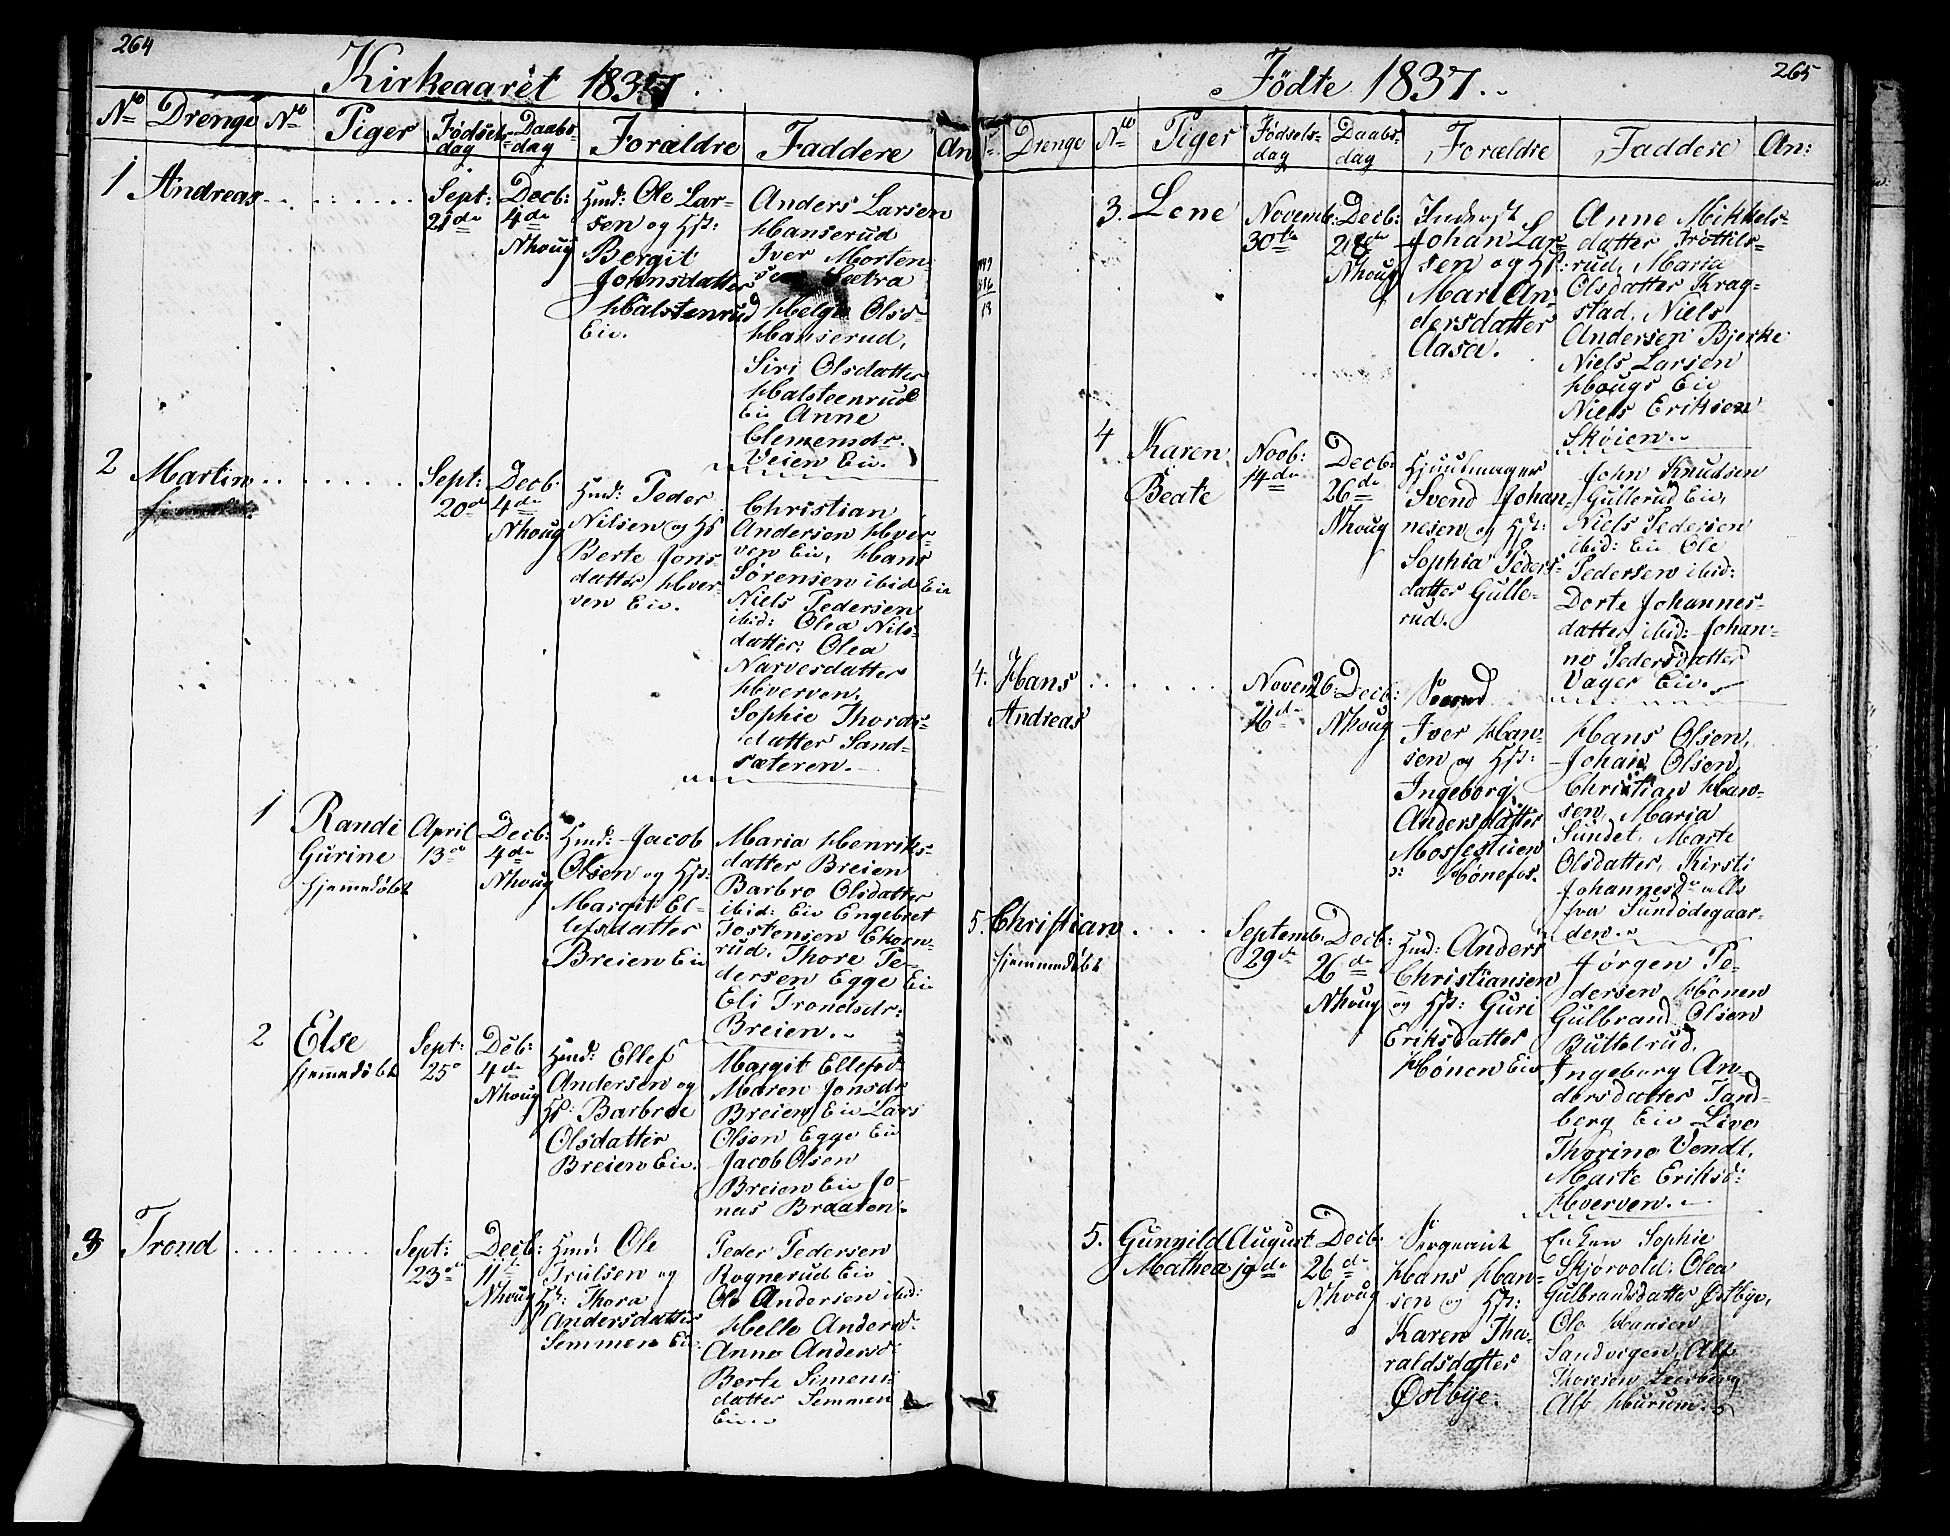 264
Kirkeaaret 1837.
No Drenge No Piger Fødsels- dag Daabs- dag Forældre Faddere An
1 Andreas
Sept: 21de
Decb: 4de Nhoug
Hmd: Ole Lar-
sen og Hst:
Bergit
Johnsdatter
Halstenrud
Eie.
Anders Larsen
Hanserud
Iver Morten-
sen Sætra
Helge Olsd-
Hanserud,
Siri Olsdatter
Halsteenrud
Eie Anne
Clemensdr.
Veien Eie.
2 Martin
Sept: 20de
Decb. 4de Nhoug
Hmd: Peder
Nilsen og Hst
Berte Jons-
datter Hver-
ven Eie.
Christian
Andersen Hver-
ven Eie, Hans
Sørensen ibid Eie
Niels Pedersen
ibid: Olea Nils-
datter, Olea
Narvesdatter
Hverven,
Sophie Thords-
datter Sand-
sæteren.
1 Randi
Gurine
hjemmedøbt
April 13de
Decb: 4de Nhoug
Hmd: Jacob
Olsen og Hst:
Margit El-
lefsdatter
Breien Eie
Maria Henriks-
datter Breien
Barbro Olsdatter
ibid: Eie Engebret
Tostensen Ekorn-
rud. Thore Pe-
dersen Egge Eie
Eli Trondsdr:
Breien.
2 Else
hjemmedøbt
Sept: 25de
Decb: 4de Nhoug
Hmd: Ellef
Andersen og
Hst: Barbroe
Olsdatter
Breien Eie.
Margit Ellefsd-
Maren Jonsdr
Breien Eie Lars
Olsen Egge Eie
Jacob Olsen
Breien Eie Jo-
nas Braaten.
3 Trond
Sept: 23de
Decb: 11te Nhoug
Hmd: Ole
Trulsen og
Hst: Thora
Andersdatter
Semmen Eie.
Peder Pedersen
Rognerud Eie
Ole Andersen ibid:
Helle Andersd.
Anne Andersd:
Berte Simens-
datter Semmen
Eie.
Fødte 1837.
265
No Drenge No Piger Fødsels- dag Daabs- dag Forældre Faddere An:
3. Lene
Novemb: 30te
Decb: Nhoug
Inderst
Johan Lar-
sen og Hst:
Mari An-
dersdatter
Aasa.
Anne Mikkels-
datter Trøttils-
rud, Maria
Olsdatter Krag-
stad, Niels
Andersen Bjerke
Niels Larsen
Hougs Eie
Niels Eriksen
Skøien.
4 Karen
Beate
Novb: 14de
Decb: 26de Nhoug
Hjuulmager
Svend Johan-
nesen og Hst:
Sophia Peders-
datter Gulle-
rud.
John Knudsen
Gullerud Eie,
Niels Pedersen
ibid: Eie Ole
Pedersen ibid:
Dorte Johannes-
datter ibid: Johan-
ne Pedersdatter
Vager Eie.
4. Hans
Andreas
Novem 16de
26: Decb: Nhoug
Svend
Iver Han-
sen og Hst:
Ingeborg
Andersdatter
Mosfestuen
Hønefos.
Hans Olsen,
Johan Olsen,
Christian Han-
sen, Maria
Sundet, Marte
Olsdatter, Kirsti
Johannesdr alle
fra Sundødegaar-
den.
5. Christian
hjemmedøbt
Septemb. 29de
Decb: 26de Nhoug
Hmd: Anders
Christiansen
og Hst: Guri
Eriksdatter
Hønen Eie
Jørgen Pe-
dersen Hønen
Gulbrand Olsen
Buttelrud,
Ingeborg An-
dersdatter Tand-
berg Eie Live
Thorine Vendt,
Marte Eriksd:
Hverven.
5. Gunnild
Mathea
August 19de
Decb: 26de Nhoug
Sergeant
Hans Han-
sen og Hst:
Karen Tha-
raldsdatter
Østbye.
Enken Sophie
Skjørvold, Olea
Gulbrandsdatter Østbye,
Ole Hansen
Sandvigen, Alf
Thoresen
Alf Hurum.